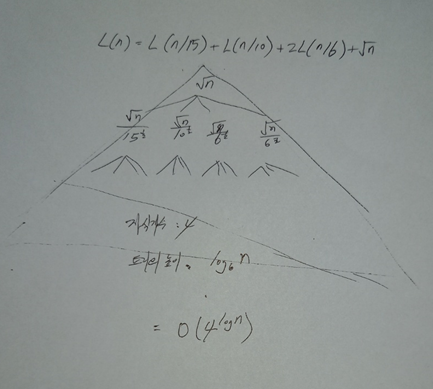 L(n) = L(n/15) + L(n/10) + 2L(n/6) + √n
√n
√n/15² √n/10² √n/6² √n/6²
자식개수 : 4
트리의 높이 = log₆ n
= O(4^log n)